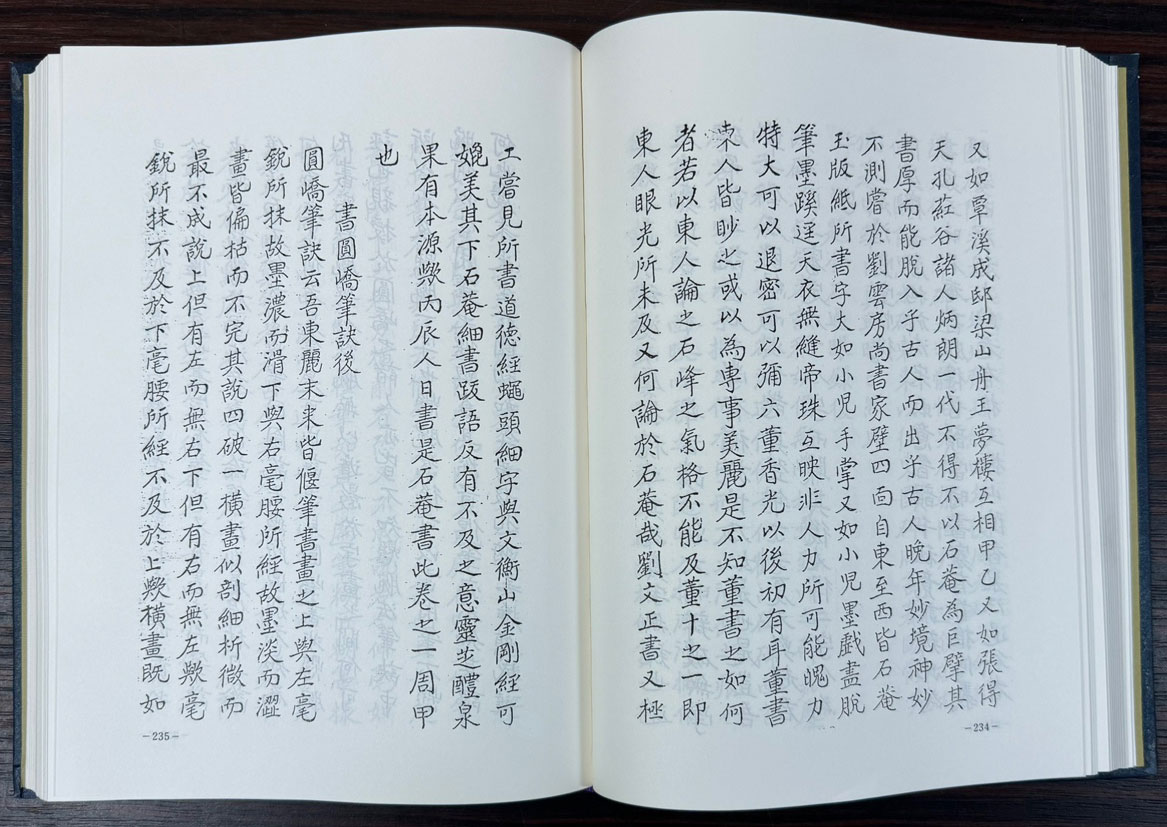 又如覃溪成邸梁山舟王夢樓互相甲乙又如張得
天孔葒谷諸人炳朗一代不得不以石菴為巨擘其
書厚而能脫入乎古人而出乎古人晚年妙境神妙
不測嘗於劉雲房尚書家壁四面自東至西皆石菴
玉版紙所書字大如小児手掌又如小児墨戲盡脫
筆墨蹊逕天衣無縫帝珠互映非人力所可能愧力
特大可以退密可以彌六董香光以後初有耳董書
東人皆眇之或以為專事美麗是不知董書之如何
者若以東人論之石峰之氣格不能及董十之一即
東人眼光所未及又何論於石菴哉劉文正書又極
－234－
工嘗見所書道德經蠅頭細字與文衡山金剛經可
媲美其下石菴細書跋語反有不及之意靈芝醴泉
果有本源歟丙辰人日書是石菴書此卷之一周甲
也
書圓嶠筆訣後
圓嶠筆訣云吾東麗末来皆偃筆書畫之上與左毫
銳所抹故墨濃而滑下與右毫腰所經故墨淡而澀
畫皆偏枯而不完其說四破一橫畫似剖細析微而
最不成說上但有左而無右下但有右而無左歟毫
銳所抹不及於下毫腰所經不及於上歟橫畫既如
－235－